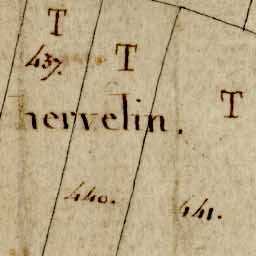 T
437. T
hervelin. T
440.
441.